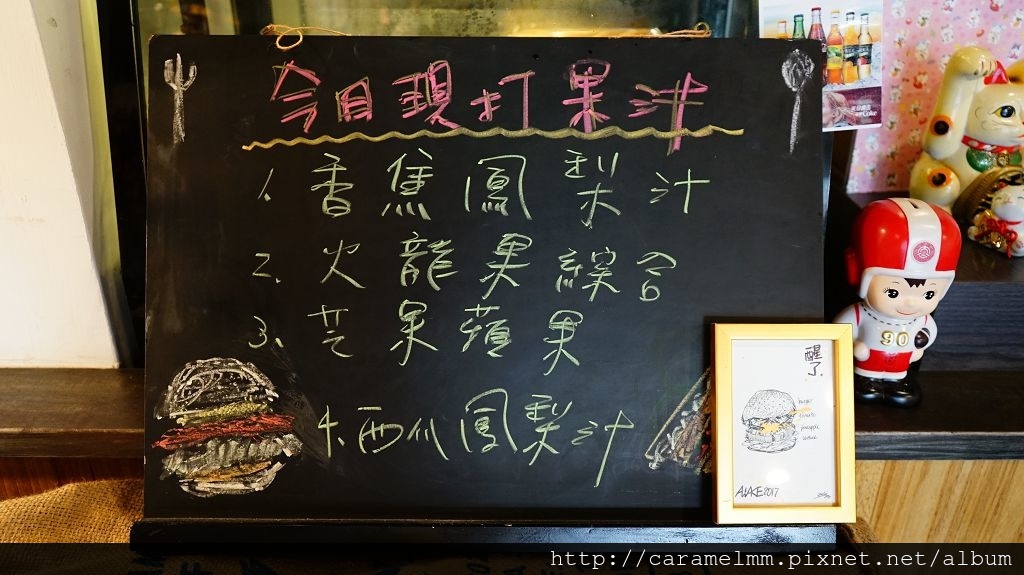 今日現打果汁
1. 香蕉鳳梨汁
2. 火龍果綜合
3. 芒果蘋果
4. 西瓜鳳梨汁
醒了.
burger
tomato
pineapple
AWAKE 2017
90
Coke
http://caramelmm.pixnet.net/album